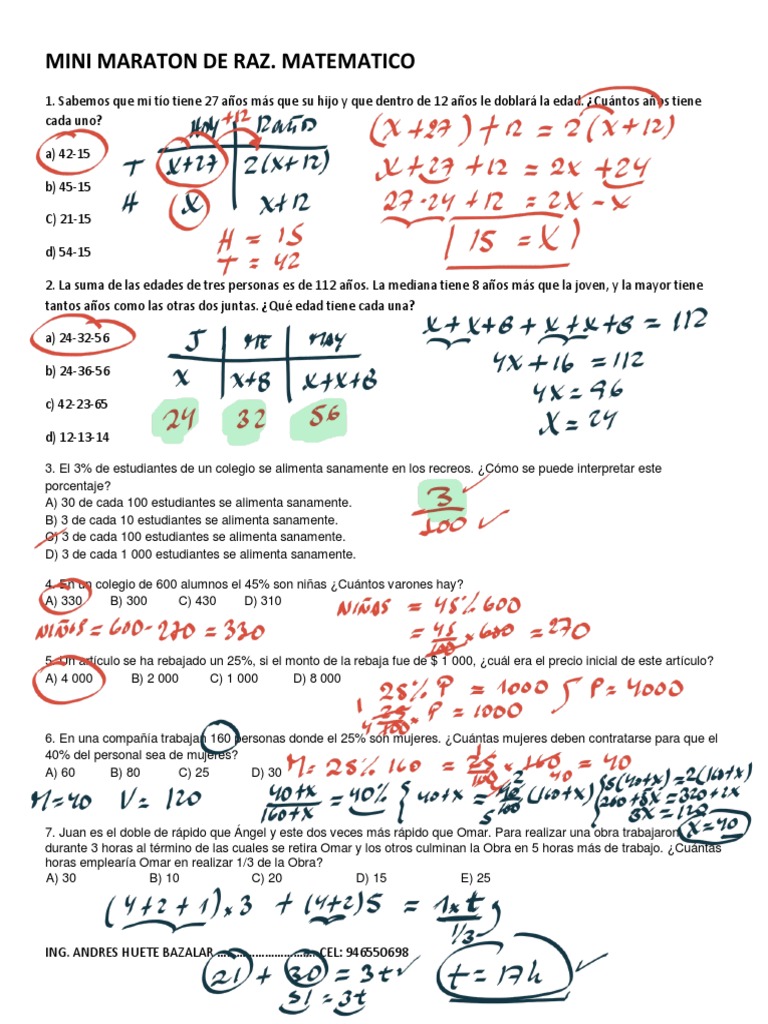 MINI MARATON DE RAZ. MATEMATICO
1. Sabemos que mi tío tiene 27 años más que su hijo y que dentro de 12 años le doblará la edad. ¿Cuántos años tiene
cada uno?
HOY +12 12 años
(x+27)+12 = 2(x+12)
a) 42-15
T x+27 2(x+12)
x+27+12 = 2x+24
b) 45-15
H x x+12
27-24+12 = 2x-x
C) 21-15
H = 15
15 = x
d) 54-15
T = 42
2. La suma de las edades de tres personas es de 112 años. La mediana tiene 8 años más que la joven, y la mayor tiene
tantos años como las otras dos juntas. ¿Qué edad tiene cada una?
x+x+8+x+x+8 = 112
a) 24-32-56
J ME MAY
4x+16 = 112
b) 24-36-56
x x+8 x+x+8
4x = 96
c) 42-23-65
24 32 56
x = 24
d) 12-13-14
3. El 3% de estudiantes de un colegio se alimenta sanamente en los recreos. ¿Cómo se puede interpretar este
porcentaje?
A) 30 de cada 100 estudiantes se alimenta sanamente.
B) 3 de cada 10 estudiantes se alimenta sanamente.
C) 3 de cada 100 estudiantes se alimenta sanamente.
D) 3 de cada 1 000 estudiantes se alimenta sanamente.
3/100
4. En un colegio de 600 alumnos el 45% son niñas ¿Cuántos varones hay?
A) 330 B) 300 C) 430 D) 310
NIÑAS = 45% 600
NIÑOS = 600-270 = 330
= 45/100 x 600 = 270
5. Un artículo se ha rebajado un 25%, si el monto de la rebaja fue de $ 1 000, ¿cuál era el precio inicial de este artículo?
A) 4 000 B) 2 000 C) 1 000 D) 8 000
25% P = 1000 P = 4000
1 25/100 4 x P = 1000
6. En una compañía trabajan 160 personas donde el 25% son mujeres. ¿Cuántas mujeres deben contratarse para que el
40% del personal sea de mujeres?
A) 60 B) 80 C) 25 D) 30
M = 25% 160 = 25/100 x 160 = 40
M = 40 V = 120
40+x/160+x = 40%
40+x = 40/100 (160+x)
5(40+x) = 2(160+x)
200+5x = 320+2x
3x = 120
x = 40
7. Juan es el doble de rápido que Ángel y este dos veces más rápido que Omar. Para realizar una obra trabajaron
durante 3 horas al término de las cuales se retira Omar y los otros culminan la Obra en 5 horas más de trabajo. ¿Cuántas
horas emplearía Omar en realizar 1/3 de la Obra?
A) 30 B) 10 C) 20 D) 15 E) 25
(4+2+1)x3 + (4+2)5 = 1xt/1/3
ING. ANDRES HUETE BAZALAR ............................ CEL: 946550698
21 + 30 = 3t
51 = 3t
t = 17h